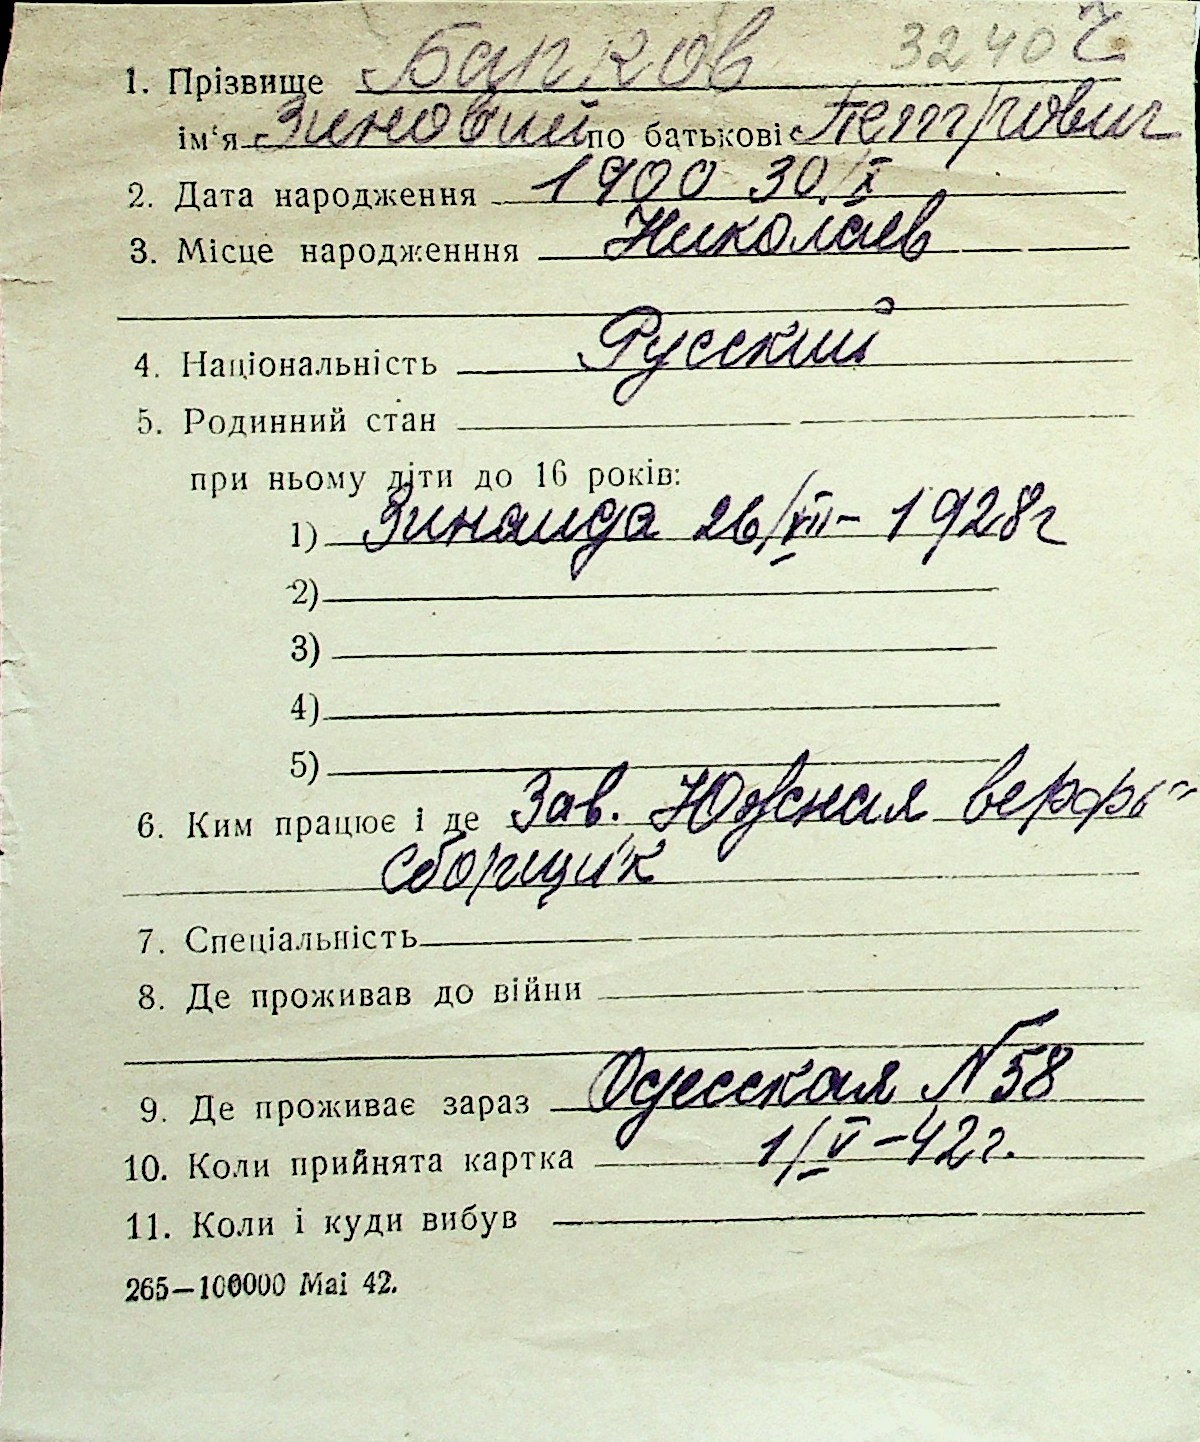 3240
1. Прізвище Бапков
ім‘я Зиновий по батькові Петрович
2. Дата народження 1900 30/X
3. Місце народженння Николаев
4. Національність Русский
5. Родинний стан
при ньому діти до 16 років:
1) Зинаида 26/VII - 1928г
2)
3)
4)
5)
6. Ким працює і де Зав. Южная верфь"
сборщик
7. Спеціальність
8. Де проживав до війни
9. Де проживає зараз Одесская N 58
10. Коли прийнята картка 1/V - 42г.
11. Коли і куди вибув
265—100000 Mai 42.